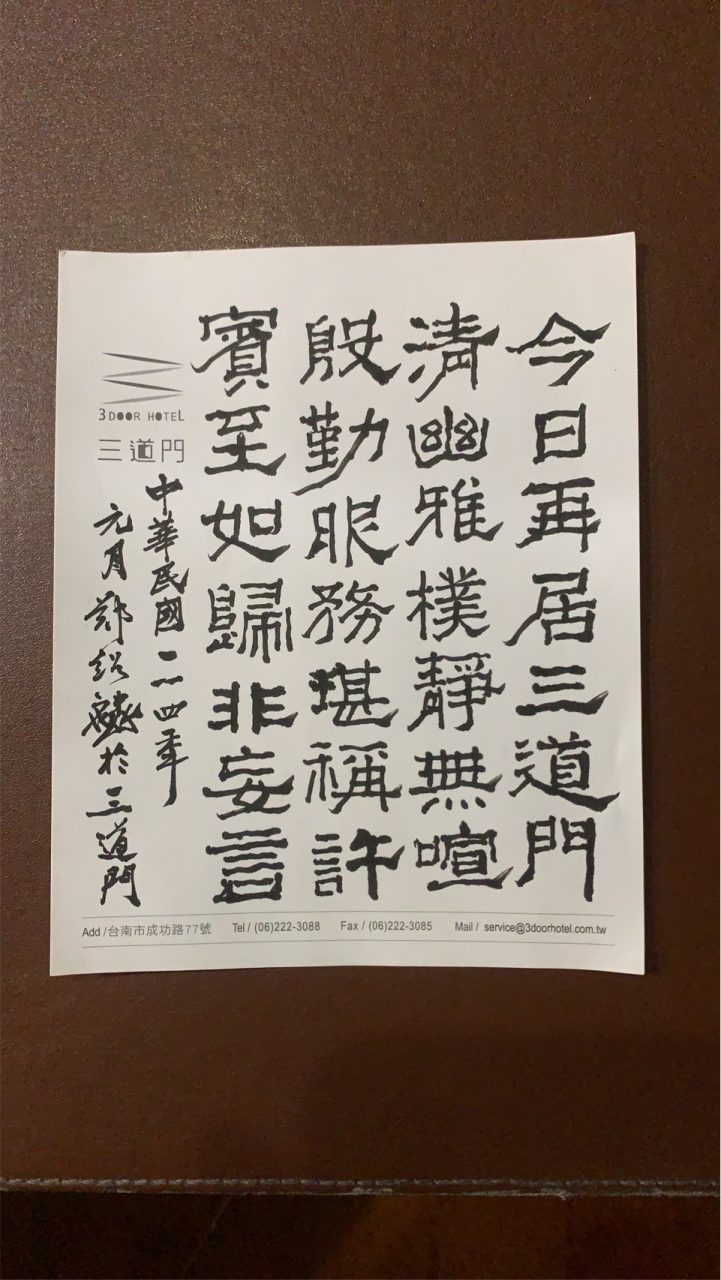 今日再居三道門
清幽雅樸靜無喧
殷勤服務堪稱許
賓至如歸非妄言
中華民國一一四年
元月鄭紹麟於三道門
3 DOOR HOTEL
三道門
Add /台南市成功路77號 Tel / (06)222-3088 Fax / (06)222-3085 Mail / service@3doorhotel.com.tw